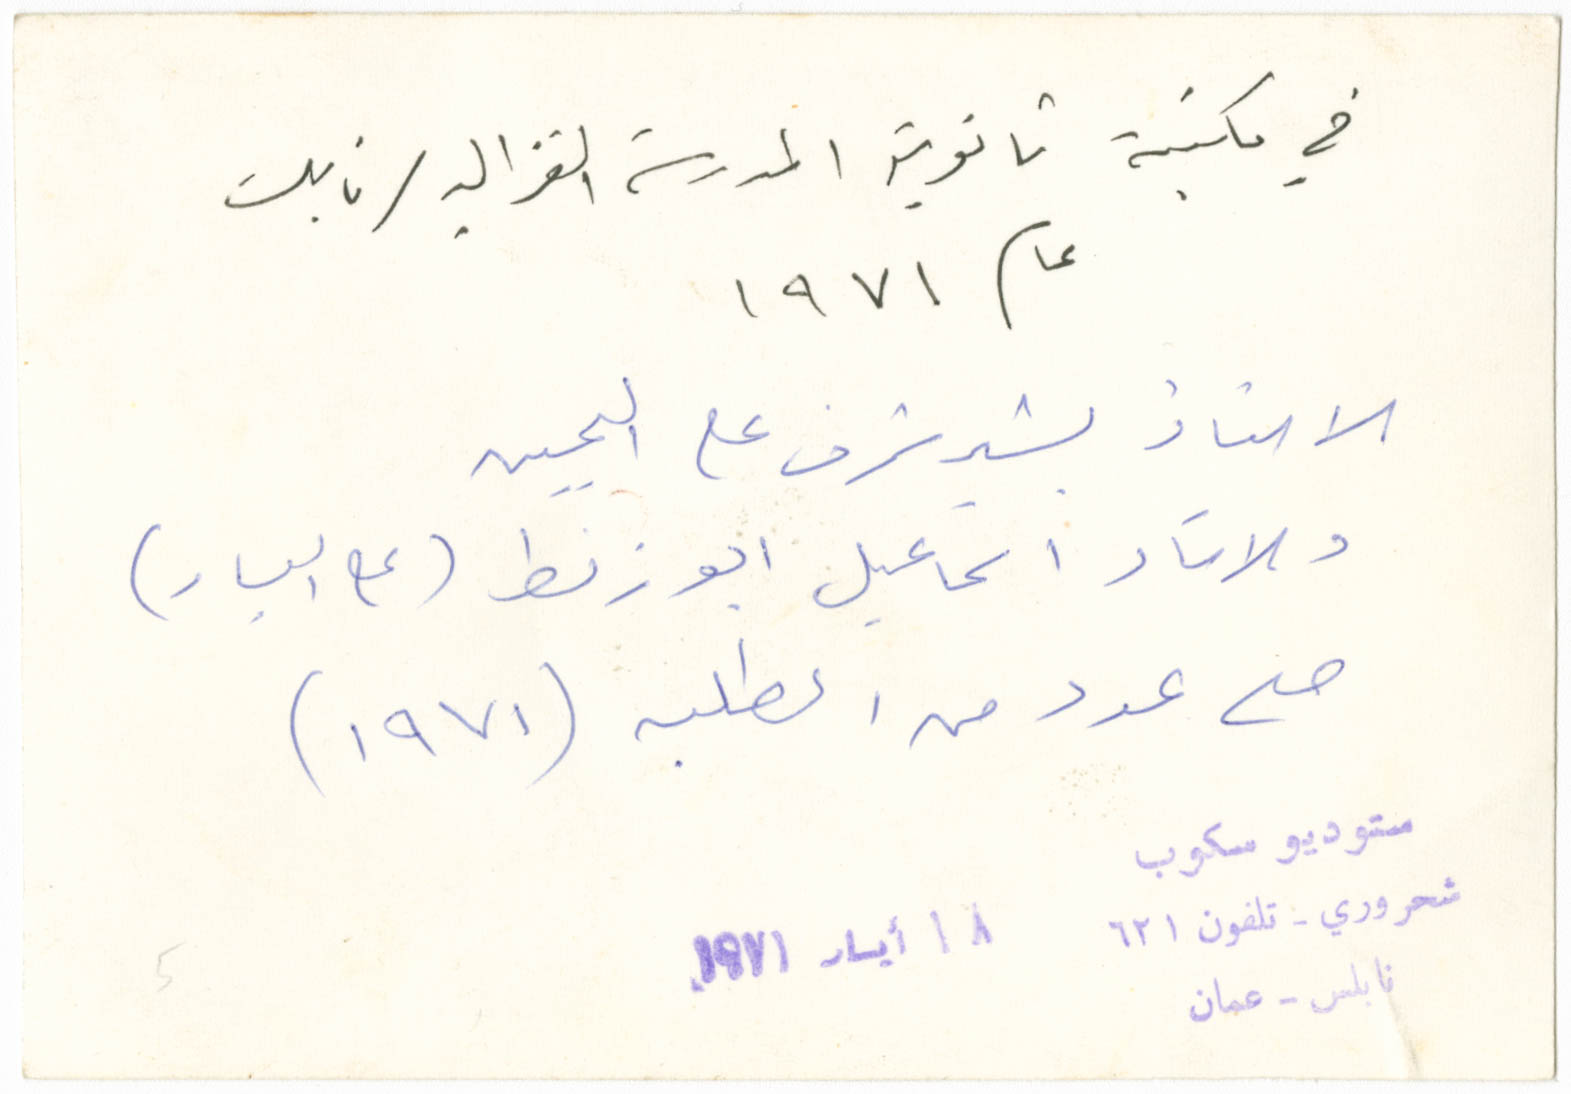 في مكتبة ثانوية المدرسة الغزاليه / نابلس
عام ١٩٧١
الاستاذ بشير شرف على اليمين
والاستاذ اسماعيل ابو زنط (على اليسار)
مع عدد من الطلبه (١٩٧١)
ستوديو سكوب
شحروري - تلفون ٦٢١
١٨ أيار ١٩٧١
نابلس - عمان